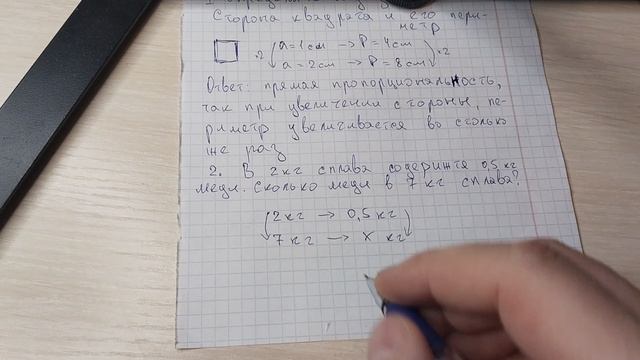 Сторона квадрата и его пери-
метр
·2 a = 1 см → P = 4 см ·2
a = 2 см → P = 8 см
Ответ: прямая пропорциональность,
так при увеличении стороны, пе-
риметр увеличивается во столько
же раз
2. В 2 кг сплава содержится 0,5 кг
меди. Сколько меди в 7 кг сплава?
2 кг → 0,5 кг
7 кг → x кг